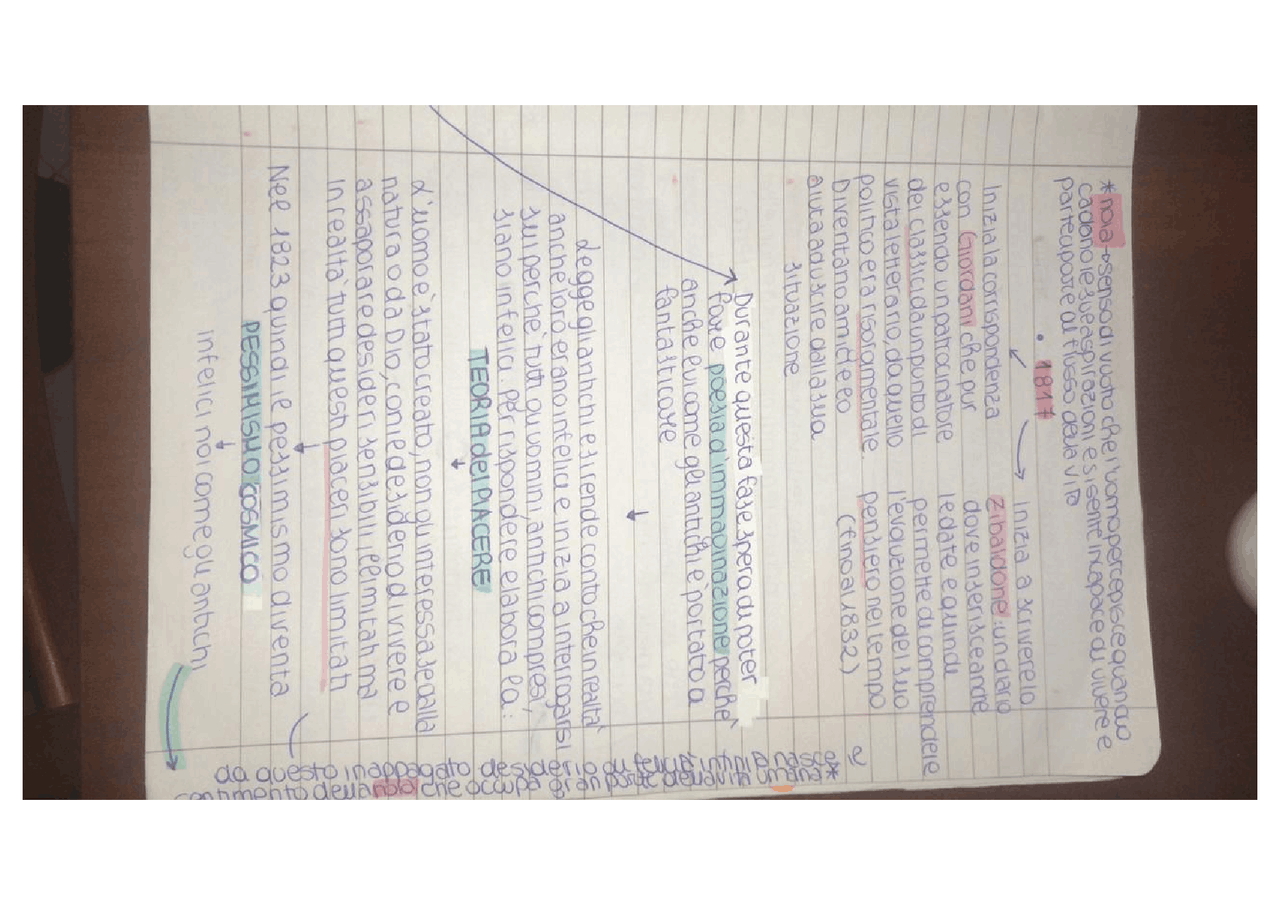 *noia → senso di vuoto che l'uomo percepisce quando
cadono le sue aspirazioni e si sente incapace di vivere e
partecipare al flusso della vita
• 1817
Inizia la corrispondenza
con Giordani che pur
essendo un patrocinatore
dei classici da un punto di
vista letterario, da quello
politico era risolgimentale.
Diventano amici e o
aiuta ad uscire dalla sua
situazione
Inizia a scrivere lo
zibaldone: un diario
dove inserisce anche
le date e quindi
permette di comprendere
l'evoluzione del suo
pensiero nel tempo
(fino al 1832)
Durante questa fase spera di poter
fare poesia d'immaginazione perchè
anche lui come gli antichi è portato a
fantasticare
Legge gli antichi e si rende conto che in realtà
anche loro erano infelici e inizia a interrogarsi
sul perchè tutti gli uomini, antichi compresi,
siano infelici. per rispondere elabora la:
TEORIA del PIACERE
L'uomo è stato creato, non gli interessa se dalla
natura o da Dio, con il desiderio di vivere e
assaporare desideri sensibili, illimitati ma
in realtà tutti questi piaceri sono limitati
Nel 1823 quindi il pessimismo diventa
PESSIMISMO COSMICO
infelici noi come gli antichi
da questo inappagato desiderio di felicità infinita nasce il
sentimento della noia che occupa gran parte della vita umana*